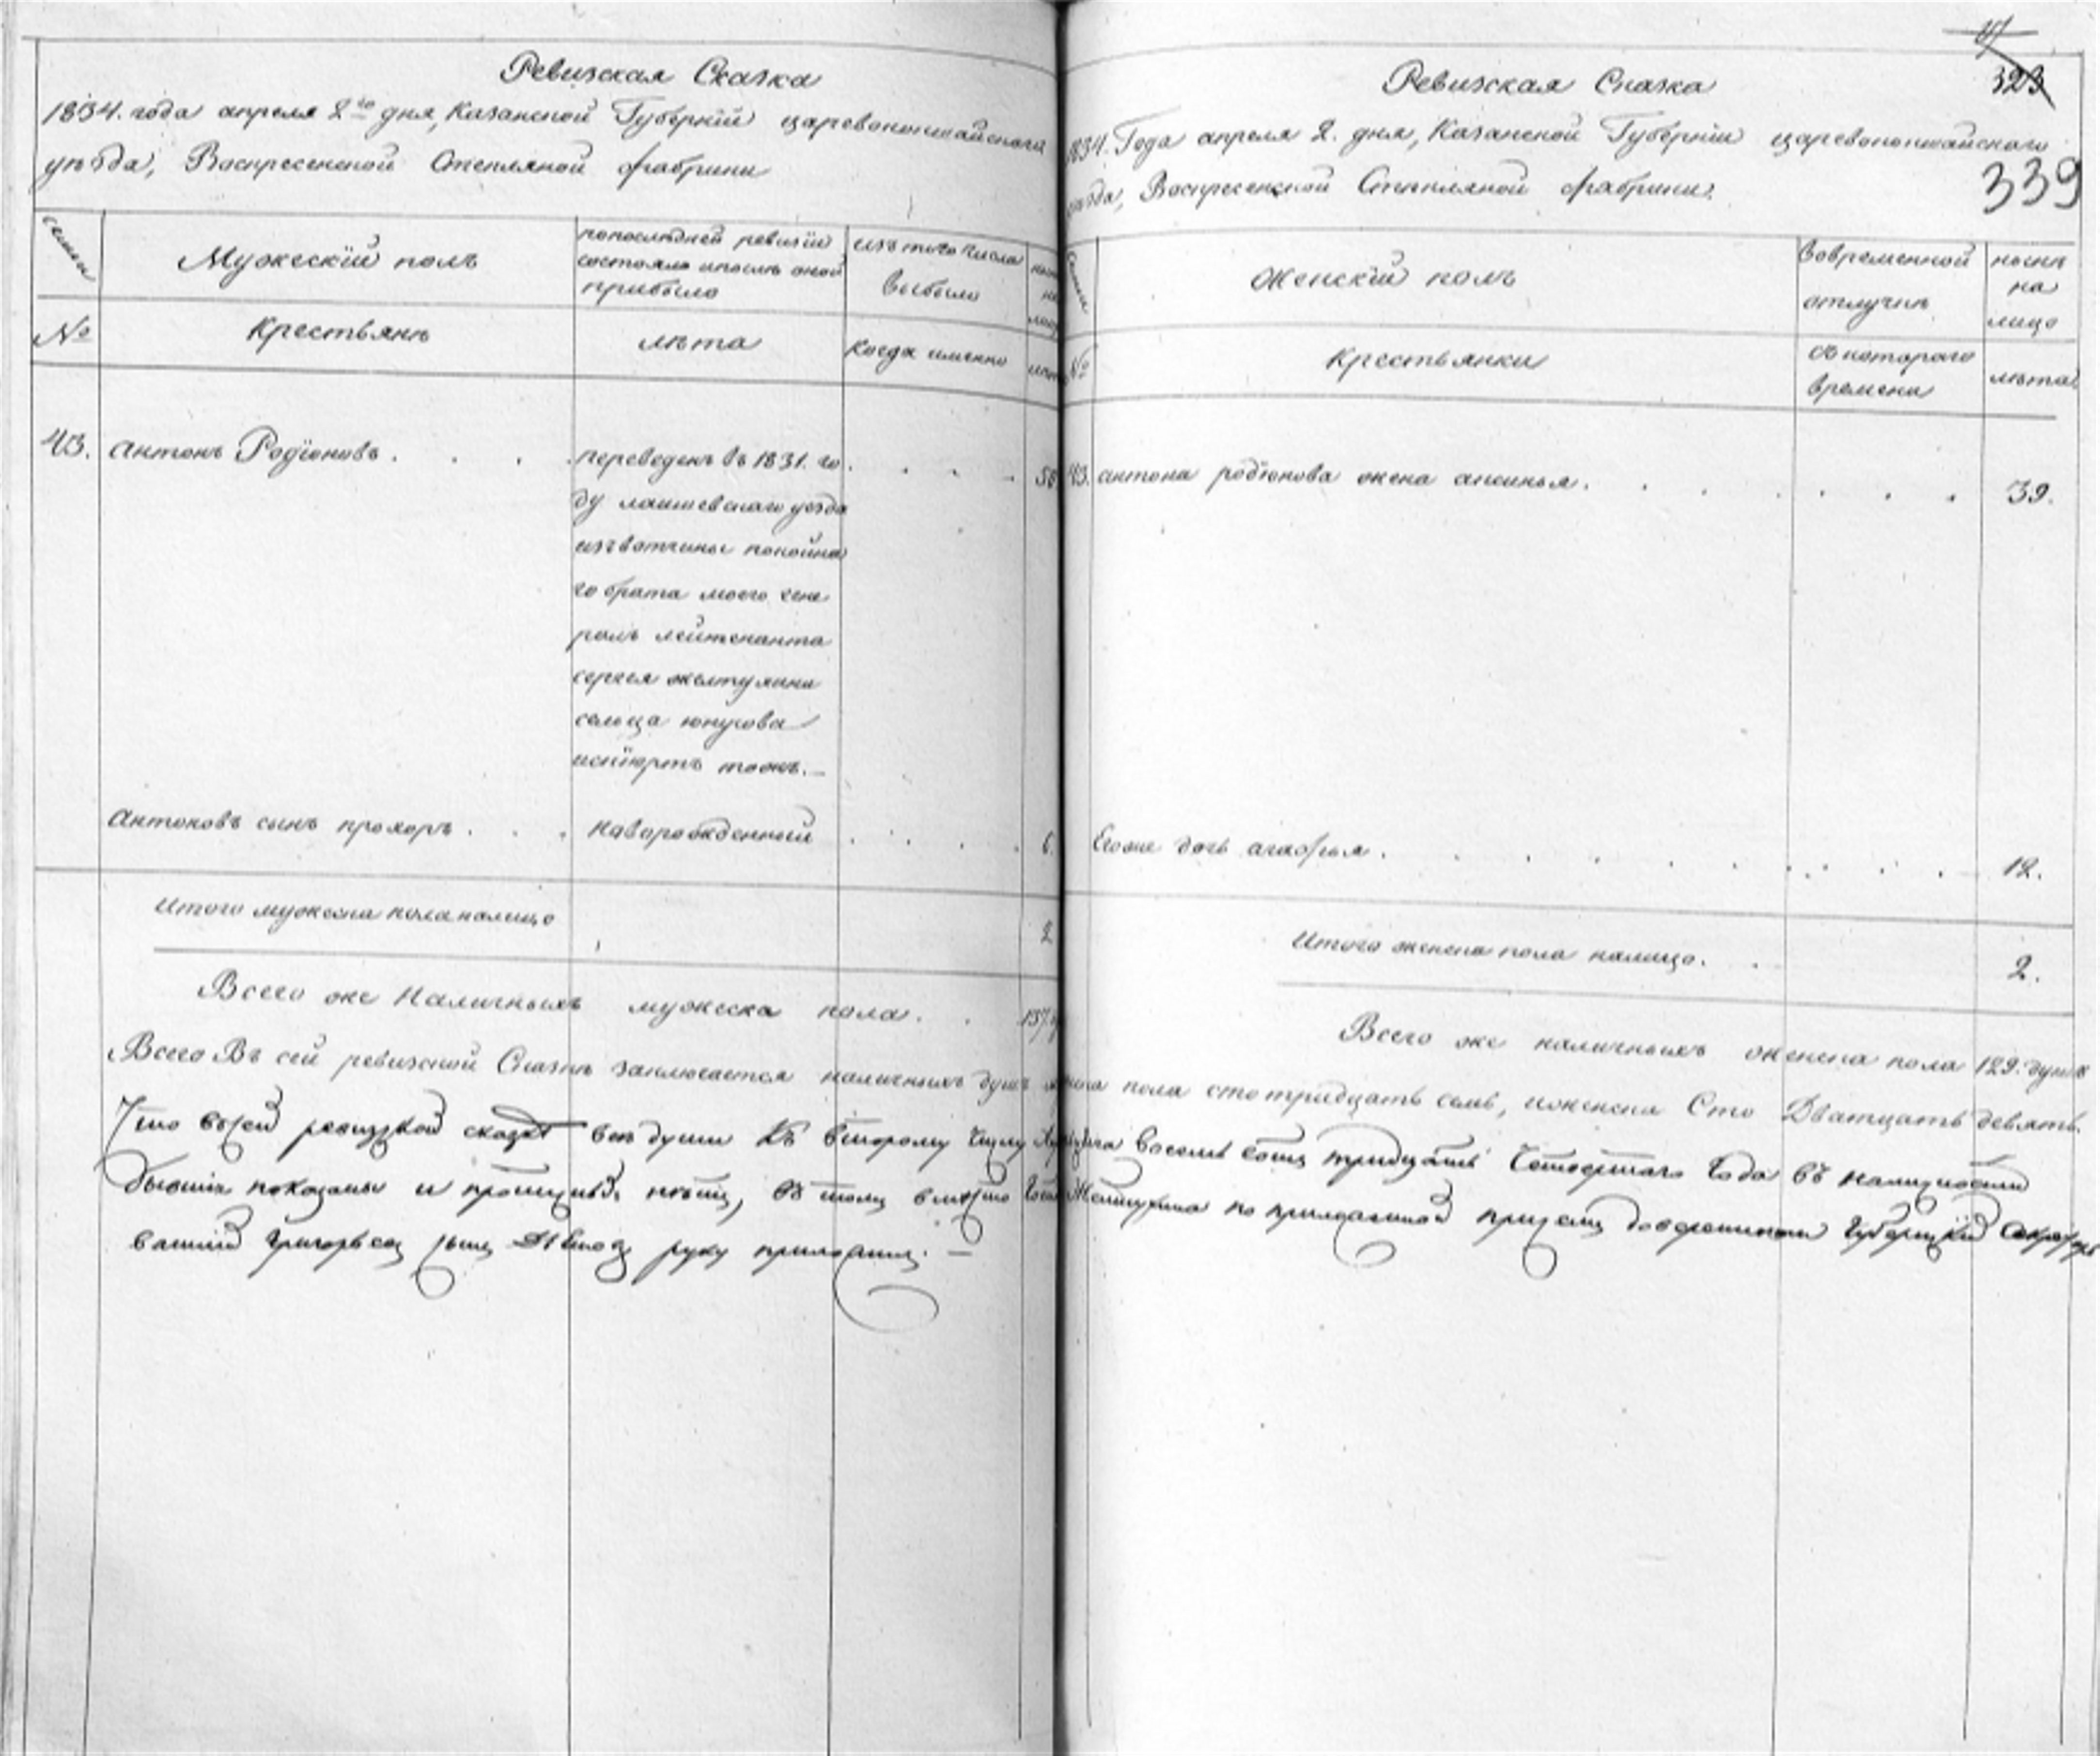 Ревизская Сказка
1834. года апреля 2го дня, Казанской Губерніи царевококшайскаго
уѣзда, Воскресенской Стекляной фабрики
семьи
Мужескій полъ
попоследней ревизіи
состояло ипослѣ оной
прибыло
изъ того числа
выбыло
№
Крестьянѣ
лѣта
Когда именно
43. антонъ Родіоновъ . . . переведенъ въ 1831. го . . . .
ду лаишевскаго уезда
изъ вотчины покойна
го брата моего гене
ралъ лейтенанта
сергея желтухина
сельца юнусова
тожъ.
антоновъ сынъ прохоръ . . . новорожденный . . . . 6.
Итого мужеска пола налицо 2
Всего же Наличныхъ мужеска пола . . 137.
Ревизская Сказка
323
339
1834. Года апреля 2. дня, Казанской Губерніи царевококшайскаго
уѣзда, Воскресенской Стекляной фабрики.
семьи
Женскій полъ
Вовременной
отлучкѣ
нынѣ
на
лицо
№
Крестьянки
съ котораго
времени
лѣта
43. антона родіонова жена аксинья . . . . . . 39.
Егоже дочь агафья . . . . . . . . . 12.
Итого женска пола налицо. . 2.
Всего же наличныхъ женска пола 129. душъ
Всего Въ сей ревизской Сказкѣ заключается наличныхъ душъ мужеска пола сто тридцать семь, иженска Сто Дватцать девять.
Что въ сей ревизской сказке все души Къ второму числу Апреля восемь сотъ тридцать Четвертаго Года въ наличности
бывшія показаны и прописныхъ нѣтъ, въ томъ вместо Желтухина по приложенной присемъ доверенности Губернскій Секретарь
василій Григорьевъ сынъ руку приложилъ. —